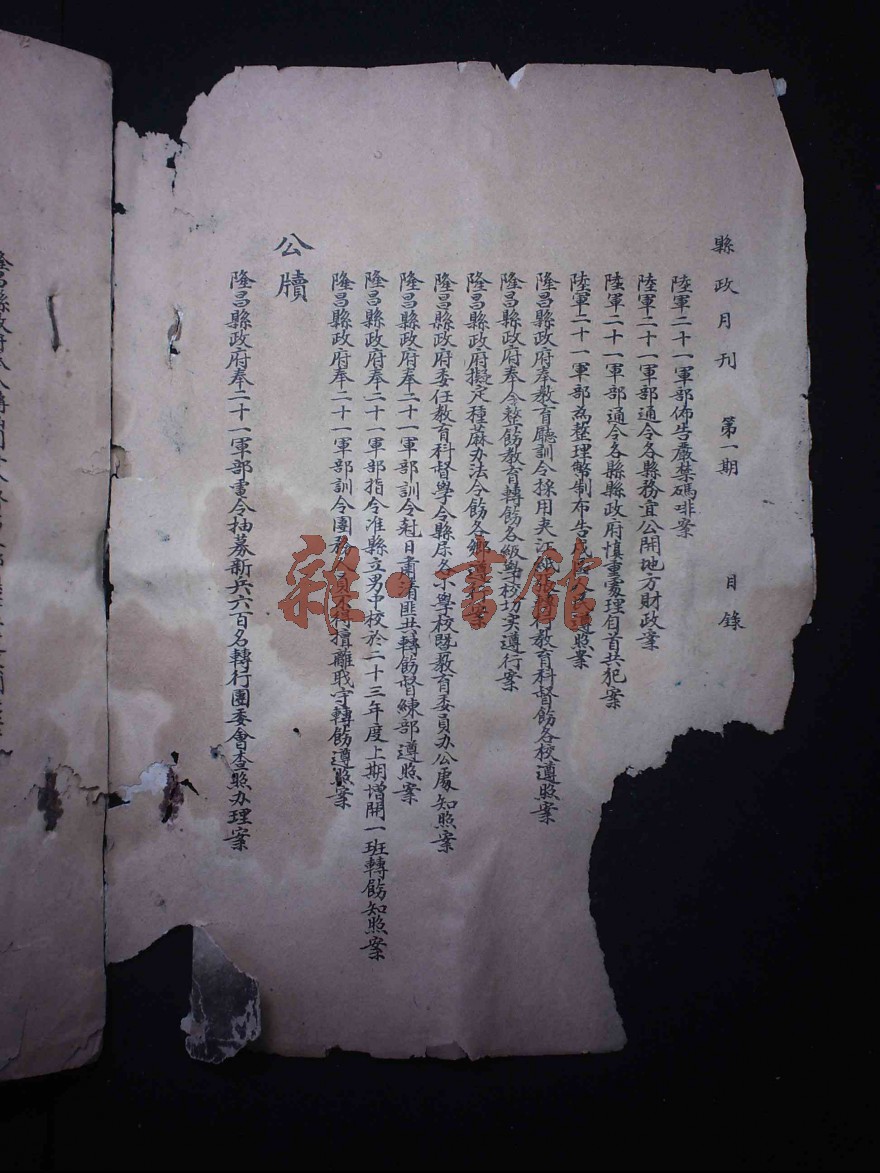 縣政月刊 第一期 目錄
陸軍二十一軍部佈告嚴禁碼啡案
陸軍二十一軍部通令各縣務宜公開地方財政案
陸軍二十一軍部通令各縣縣政府慎重處理自首共犯案
陸軍二十一軍部為整理幣制布告民遵照案
隆昌縣政府奉教育廳訓令採用夾江紙教育科督飭各校遵照案
隆昌縣政府奉令整飭教育轉飭各級學校切实遵行案
隆昌縣政府擬定種蔴办法令飭各鄉遵行案
隆昌縣政府委任教育科督學令縣屬各學校暨教育委員办公處知照案
隆昌縣政府奉二十一軍部訓令尅日肅清匪共轉飭督練部遵照案
隆昌縣政府奉二十一軍部指令准縣立男中校於二十三年度上期增開一班轉飭知照案
隆昌縣政府奉二十一軍部訓令團務人員不得擅離职守轉飭遵照案
公牘
隆昌縣政府奉二十一軍部電令抽募新兵六百名轉行團委會查照办理案
雜·書館